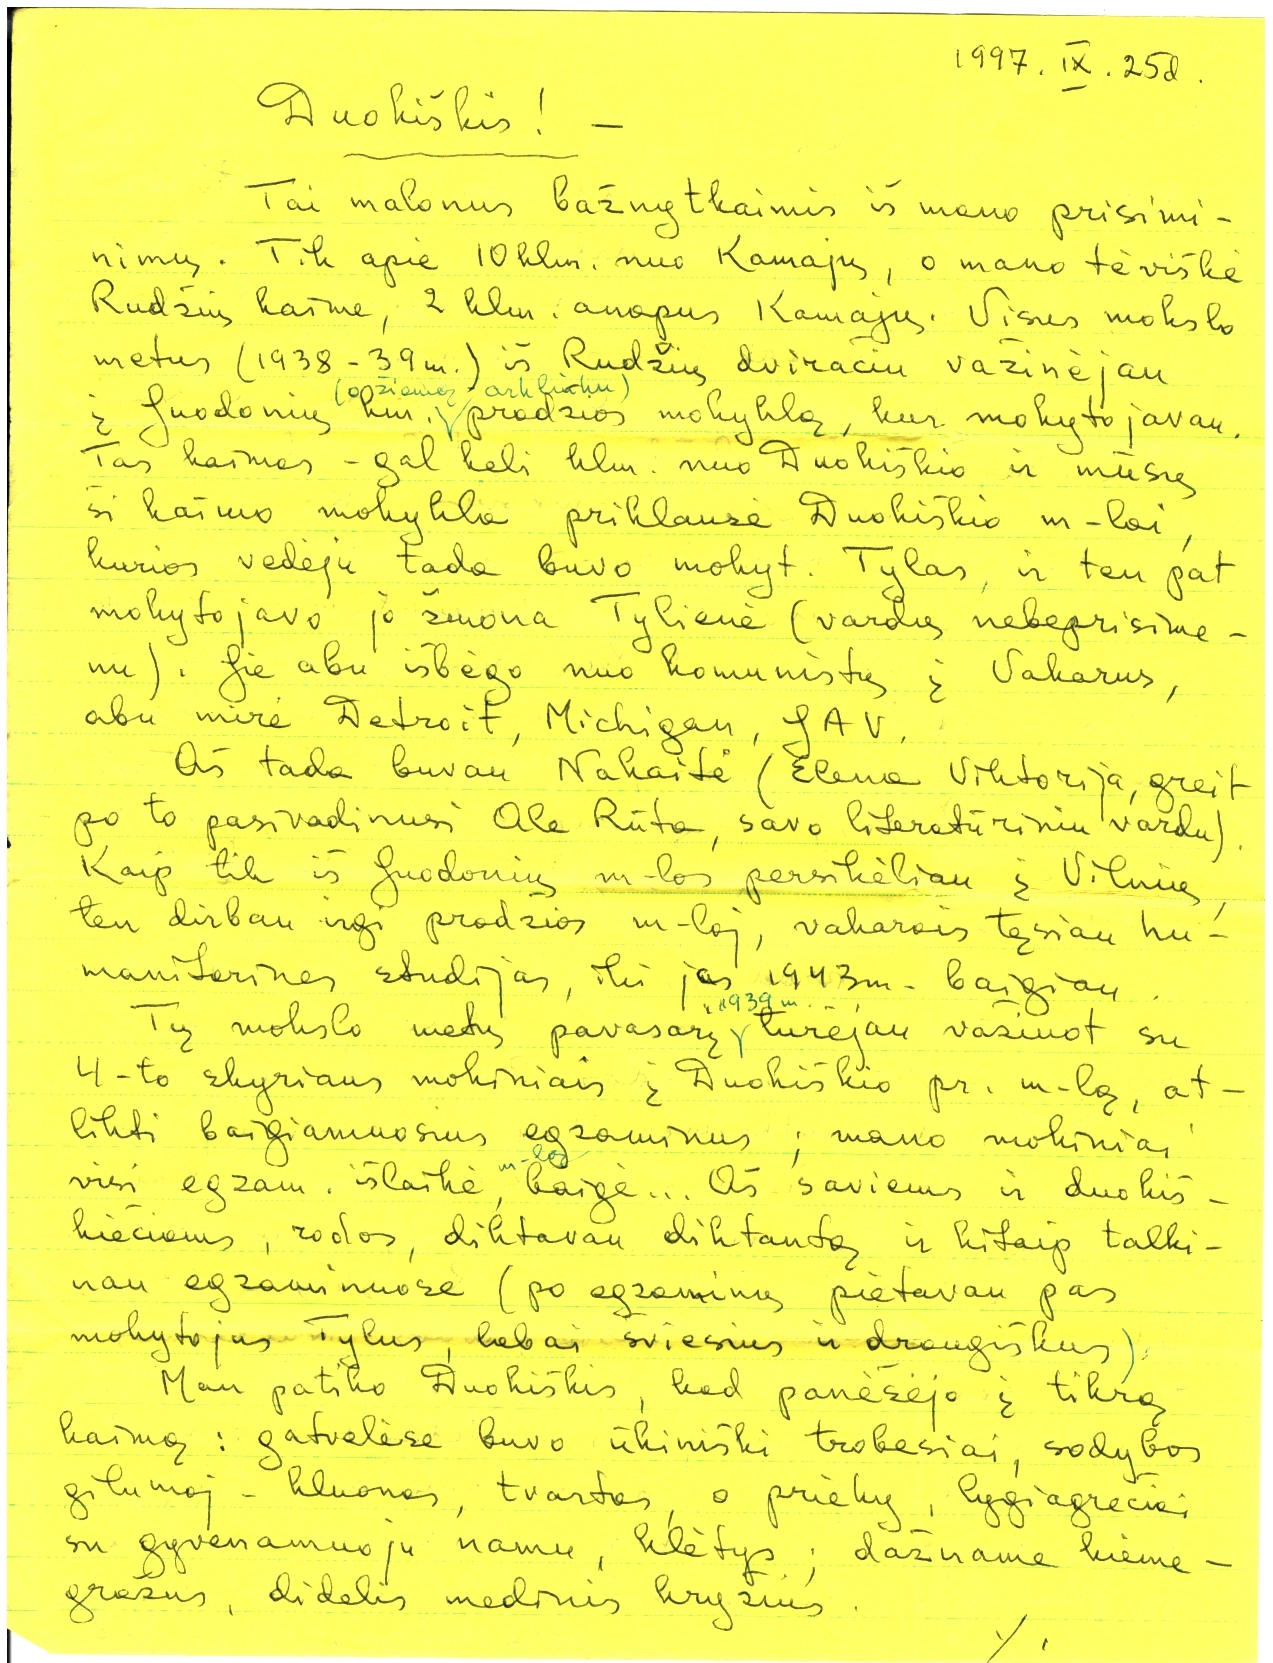 1997. IX. 25d.
Duokiškis! –
Tai malonus bažnytkaimis iš mano prisimi-
nimų. Tik apie 10 klm. nuo Kamajų, o mano tėviškė
Rudžių kaime, 2 klm. anapus Kamajų. Visus mokslo
metus (1938-39 m.) iš Rudžių dviračiu važinėjau
(o žiemą – arkliuku)
į Juodonių km. pradžios mokyklą, kur mokytojavau.
Tas kaimas – gal keli klm. nuo Duokiškio ir mūsų
ši kaimo mokykla priklausė Duokiškio m-lai,
kurios vedėju tada buvo mokyt. Tylas, ir ten pat
mokytojavo jo žmona Tylienė (vardų nebeprisime-
nu). Jie abu išbėgo nuo komunistų į Vakarus,
abu mirė Detroit, Michigan, JAV.
Aš tada buvau Nakaitė (Elena Viktorija, greit
po to pasivadinusi Ale Rūta, savo literatūriniu vardu).
Kaip tik iš Juodonių m-los persikėliau į Vilnių,
ten dirbau irgi pradžios m-loj, vakarais tęsiau hu-
manitarines studijas, iki jas 1943m. baigiau.
1939 m.
Tų mokslo metų pavasarį turėjau važiuot su
4-to skyriaus mokiniais į Duokiškio pr. m-lą, at-
likti baigiamuosius egzaminus; mano mokiniai
m-lą
visi egzam. išlaikė, baigė... Aš saviems ir duokiš-
kiečiams, rodos, diktavau diktantą ir kitaip talki-
nau egzaminuose (po egzaminų pietavau pas
mokytojus Tylus, labai šviesius ir draugiškus).
Man patiko Duokiškis, kad panėšėjo į tikrą
kaimą: gatvelėse buvo ūkiniški trobesiai, sodybos
gilumoj – kluonas, tvartas, o prieky, lygiagrečiai
su gyvenamuoju namu, klėtys; dažname kieme –
gražus, didelis medinis kryžius.
./.